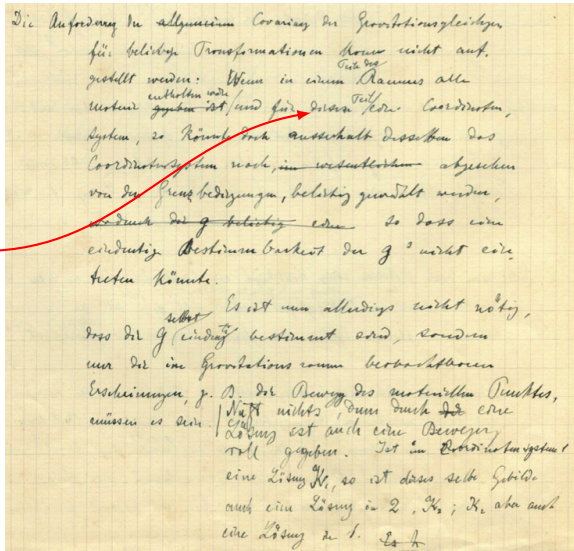 Die Anforderung der allgemeinen Covarianz der Gravitationsgleichungen
für beliebige Transformationen kann nicht auf-
gestellt werden: Wenn in einem Teile des Raumes alle
Materie gegeben ist enthalten wäre und für diesen Teil ein Coordinaten-
system, so könnte doch ausserhalb desselben das
Coordinatensystem noch, im wesentlichen abgesehen
von den Grenzbedingungen, beliebig gewählt werden,
die g beliebig so dass eine
eindeutige Bestimmbarkeit der g's nicht ein-
treten könnte.
Es ist nun allerdings nicht nötig,
dass die g selbst eindeutig bestimmt sind, sondern
nur die im Gravitationsraum beobachtbaren
Erscheinungen, z. B. die Bewegung des materiellen Punktes,
müssen es sein. Nützt nichts, denn durch eine
Lösung ist auch eine Bewegung
voll gegeben. Ist im Koordinatensystem 1
eine Lösung K1, so ist dieses selbe Gebilde
auch eine Lösung in 2, K2; K2 aber auch
eine Lösung in 1.